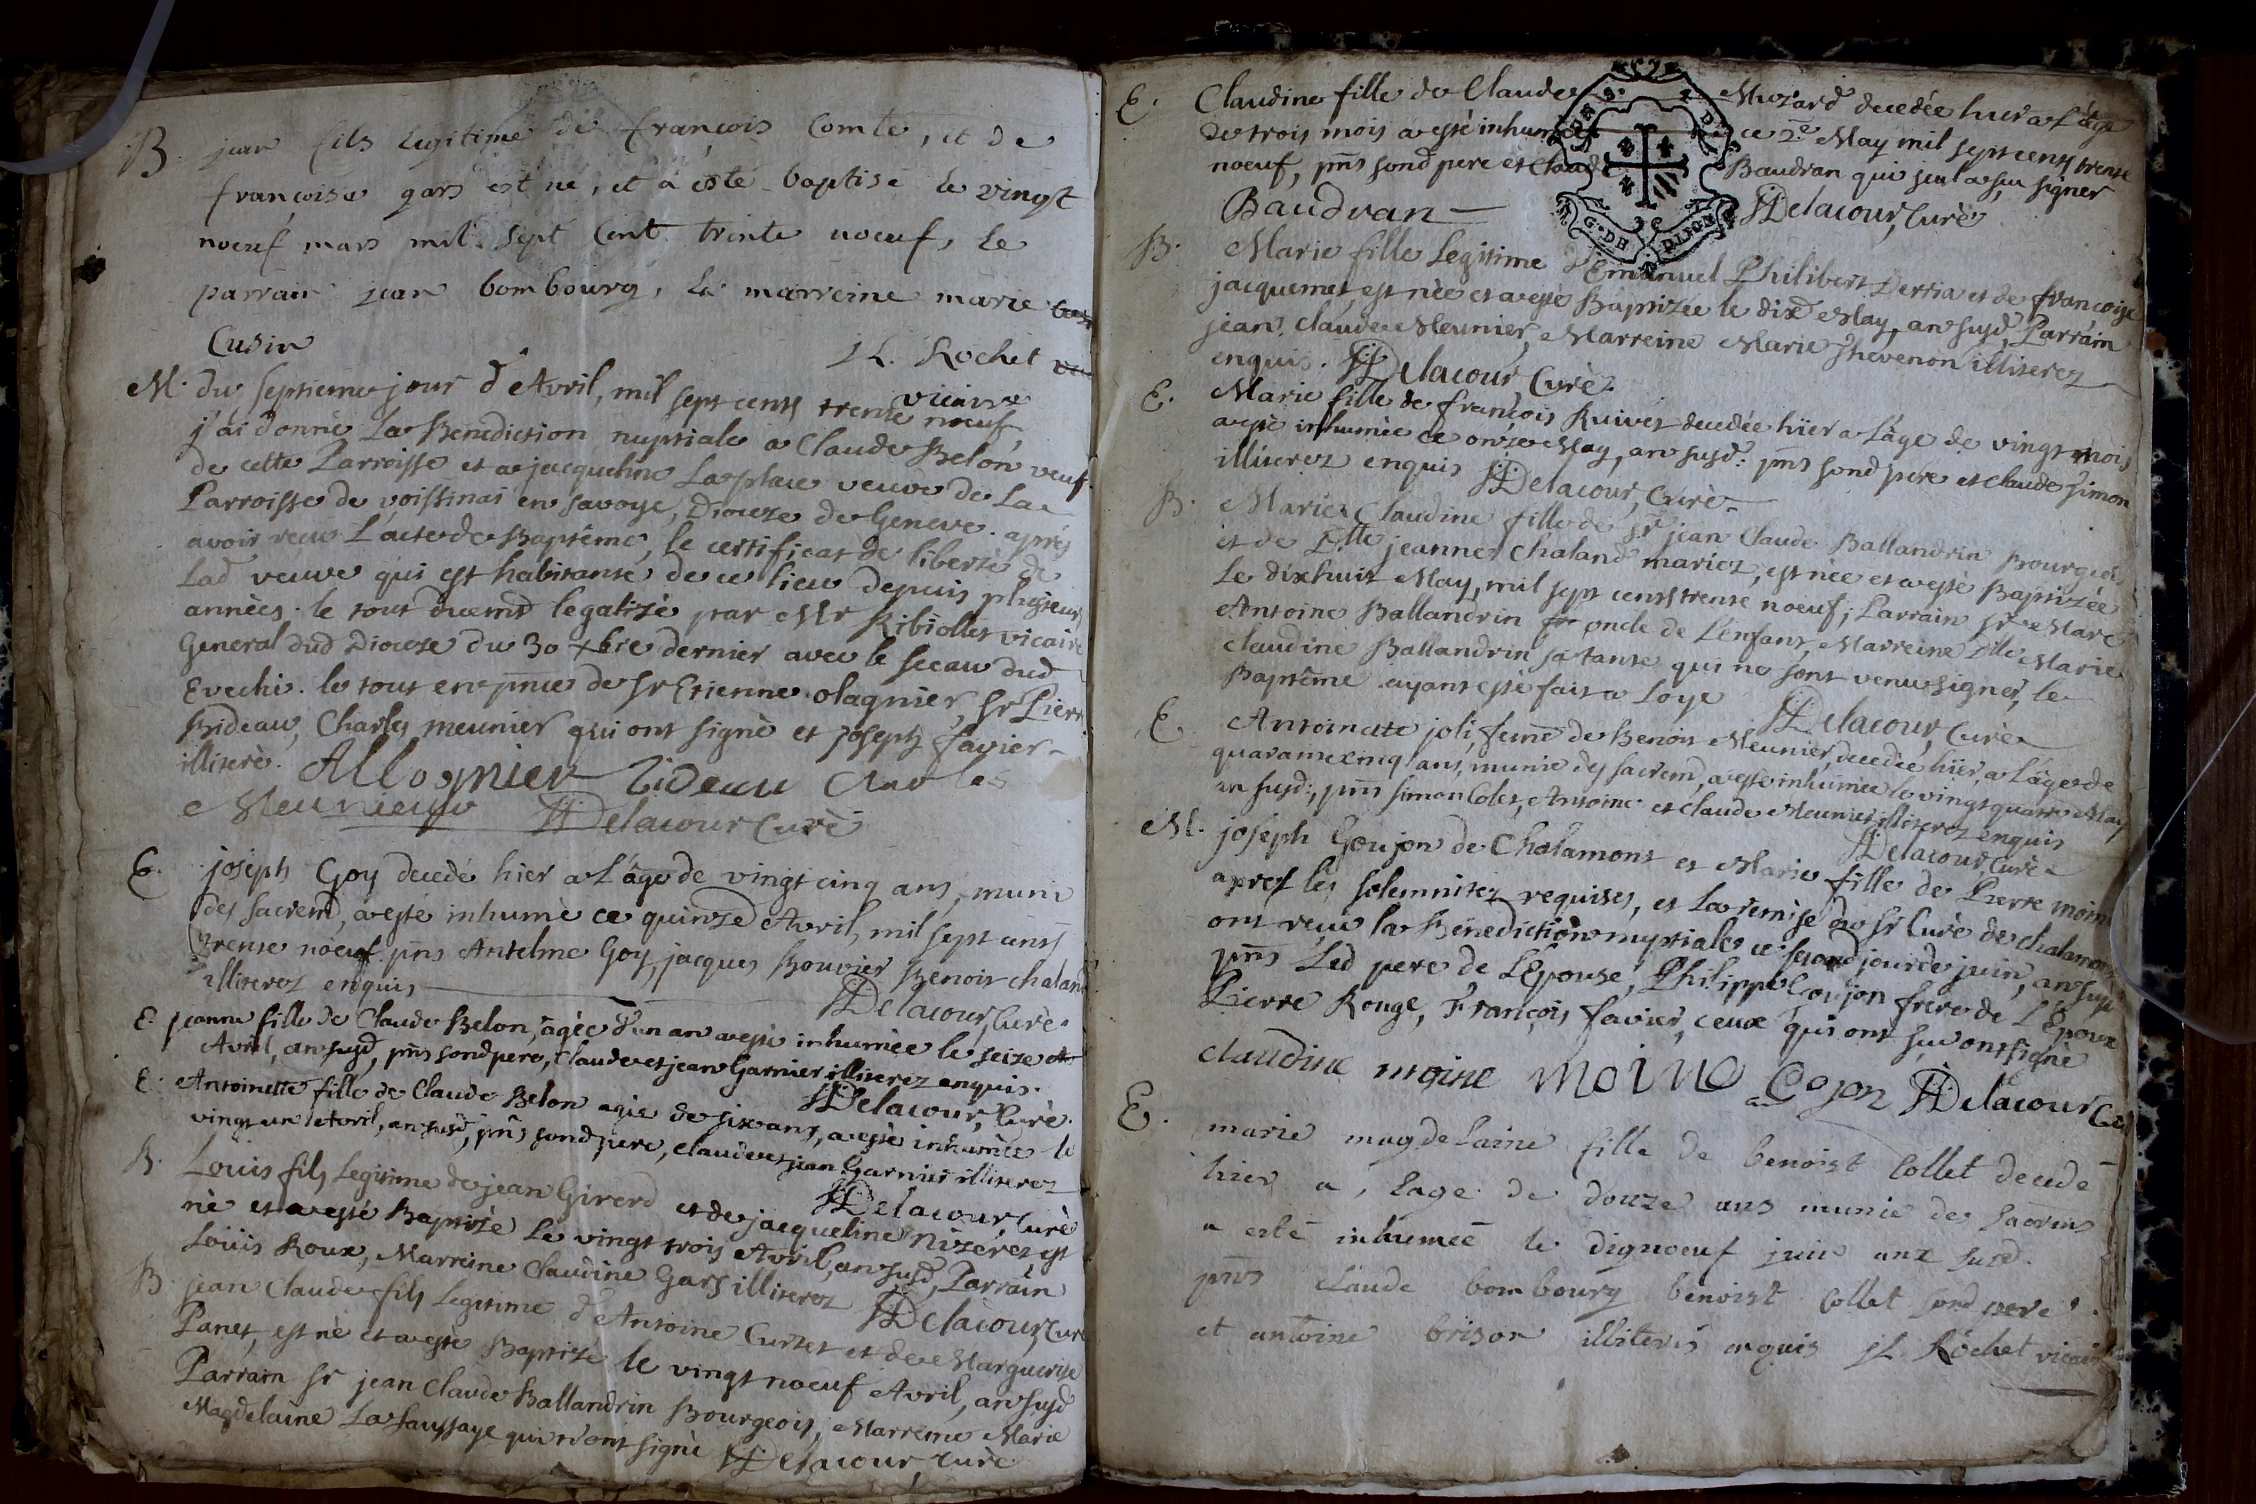 B. jean fils legitime de françois Comte, et de
françoise gars est né, et à esté baptisé le vingt
noeuf mars mil sept Cent trente noeuf, le
parrain jean bombourg, la marreine marie
Cusin J L. Rochet
vicaire
M. du septieme jour d'Avril, mil sept cents trente noeuf,
j'ai donné La Benediction nuptiale a Claude Belon veuf
de cette Parroisse et a jacqueline Laplace veuve de La
Parroisse de voissinai en savoye, Dioceze de Geneve. après
avoir receu L'acte de Baptême, le certificat de liberté de
Lad veuve qui est habitante de ce lieu depuis plusieurs
années. le tout duemt legalizé par Mr Ribiollet vicaire
General dud Dioceze du 30 xbre dernier avec le sceau dud
Evechi. le tout en pnce de sr Etienne olagnier, sr Pierre
Bideau, Charles meunier qui ont signé et joseph favier
illiteré. Allognier Bideau Charles
Meunieur Delacour Curé
E. joseph Goy decedé hier a L'âge de vingt cinq ans, muni
des sacremts, a esté inhumé ce quinze Avril, mil sept cents
trente noeuf. pnts Antelme Goy, jacques Bouvier Benoit chaland
illiterez enquis Delacour, Curé.
E. jeanne fille de Claude Belon, âgée d'un an a esté inhumée le seize
Avril, an susd, pnts sond pere, Claude et jean Garnier illiterez enquis.
Delacour, Curé.
E. Antoinette fille de Claude Belon agée de six ans, a esté inhumée le
vingt un Avril, an susd, pnts sond pere, claude et jean Garnier illiterez
Delacour, Curé
B. Louis fils legitime de jean Girerd et de jacqueline Nizerez, est
né et a esté Baptizé Le vingt trois Avril, an susd, Parrain
Loüis Roux, Marreine Claudine Gars illiterez Delacour, Curé
B. jean Claude fils legitime d'Antoine Curtet et de Marguerite
Panet, est né et a esté Baptizé le vingt noeuf Avril, an susd
Parrain sr jean Claude Ballandrin Bourgeois, Marreine Marie
Magdelaine La saussaye qui n'ont signé Delacour, curé
E. Claudine fille de Claude Mozard decedée hier a l'âge
de trois mois a esté inhumée ce 2e May mil sept cents trente
noeuf, pnts sond pere et Claude Baudran qui seul a sçu signer
Baudran Delacour, Curé
B. Marie fille Legitime d'Emanuel Philibert Dertia et de françoise
jacquemet, est née et a esté Baptizée le dix May, an susd, Parrain
jean Claude Meunier, Marreine Marie Thevenon illiterez
enquis. Delacour, Curé
E. Marie fille de françois Ruivet decedée hier a l'âge de vingt mois
a esté inhumée ce onze May, an susd: pnts sond pere et claude simon
illiterez enquis Delacour, Curé
B. Marie Claudine fille de sr jean Claude Ballandrin Bourgeois
et de Dlle jeanne Chaland mariez, est née et a esté Baptizée
Le dixhuit May, mil sept cents trente noeuf; Parrain sr Marc
Antoine Ballandrin oncle de L'enfant, Marreine Dlle Marie
Claudine Ballandrin sa tante qui ne sont venu signer, le
Baptême ayant esté fait a Loye Delacour, Curé
E. Antoinette joli, feme de Benoit Meunier, decedée hiër, a L'âge de
quarantecinq ans, munie des sacremts, a esté inhumée le vingtquatre May
an susd:, pnts simon Colet, Antoine et claude Meunier illiterez enquis
Delacour, Curé
M. joseph Goujon de Chalamont et Marie fille de Pierre moine
aprez les solemnitez requises, et La remise du sr Curé de chalamont
ont reçeu la Benediction nuptiale ce second jour de juin, an susd
pnts Led pere de L'Epouse, Philippe Goujon frere de L'Epoux
Pierre Rouge, François favier, ceux qui ont sçu ont signé
claudine moine Moine Gojon Delacour Curé
E. marie magdelaine fille de benoist Collet decedé
hier a, lage de douze ans munie des sacrmts
a esté inhumée le dignoeuf juin anx susd.
pnts claude bombourg benoist Collet sond pere
et antoine brison illiterés enquis J L Rochet vicaire